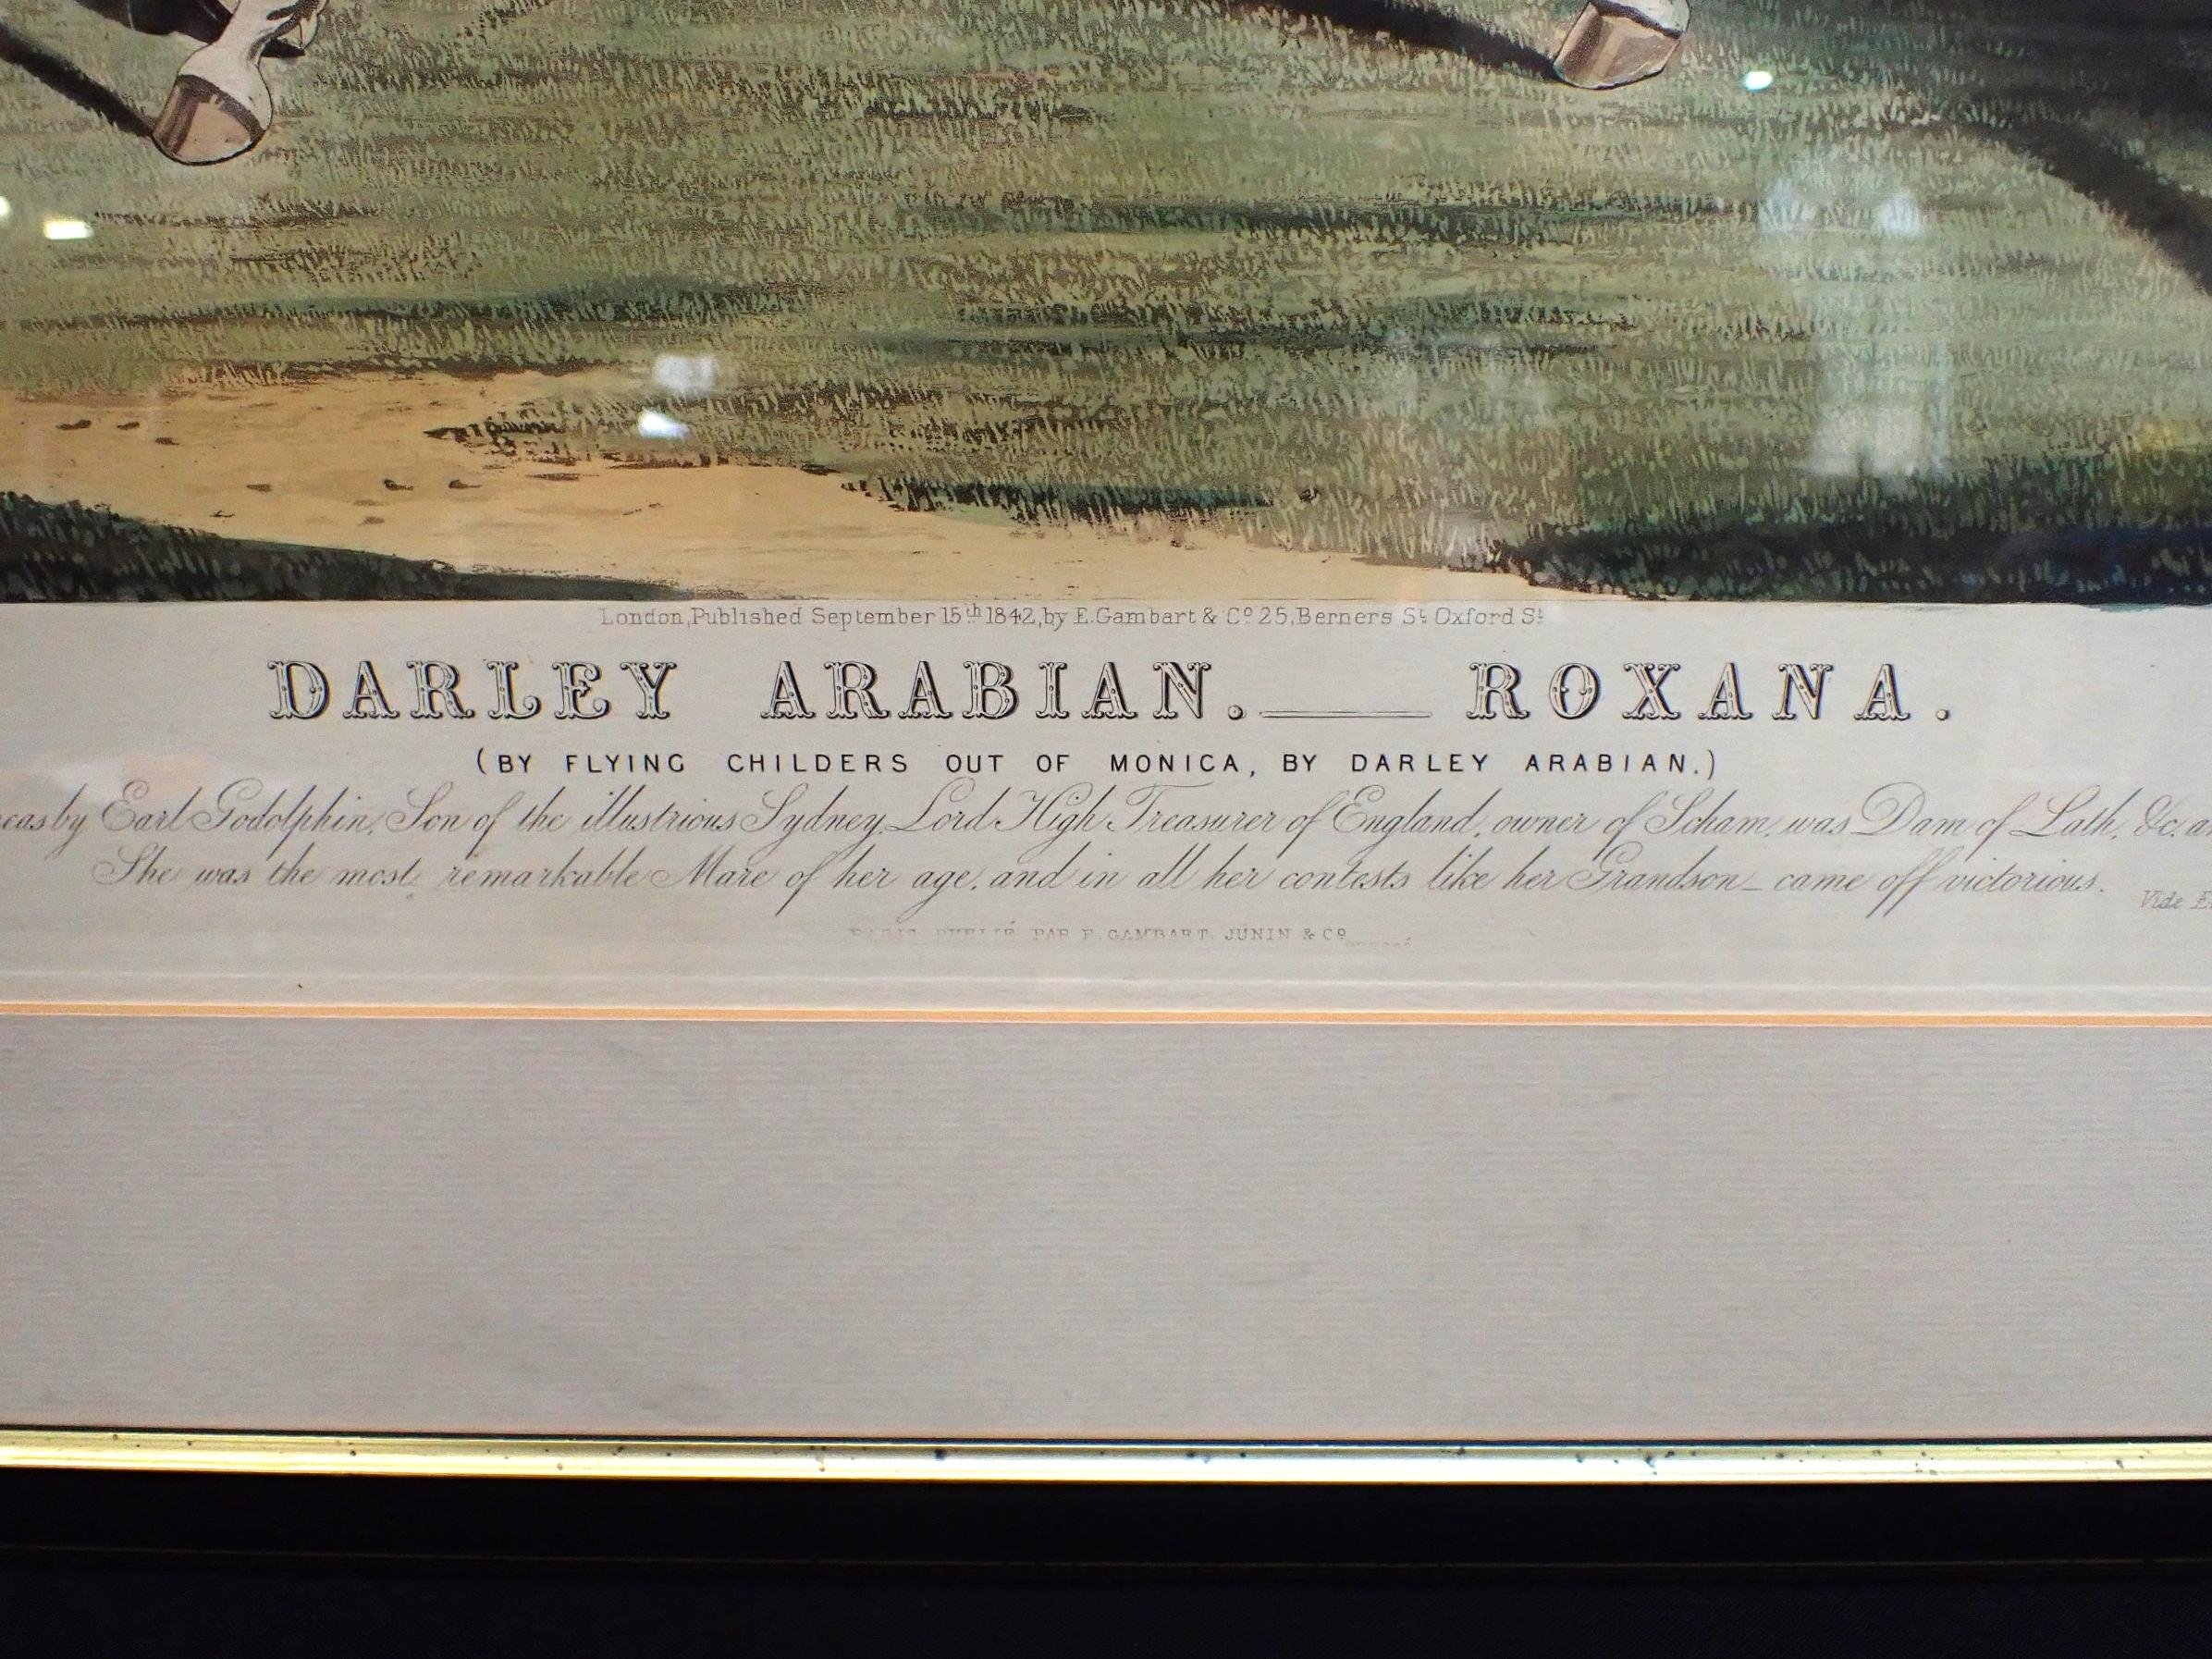 London, Published September 15th 1842, by E. Gambart & Co 25, Berners St Oxford St
DARLEY ARABIAN. ROXANA.
(BY FLYING CHILDERS OUT OF MONICA, BY DARLEY ARABIAN.)
by Earl Godolphin, Son of the illustrious Sydney, Lord High Treasurer of England, owner of Scham, was Dam of Lath, &c.
She was the most remarkable Mare of her age, and in all her contests like her Grandson_ came off victorious.
Vide
PARIS PUBLIÉ PAR E. GAMBART JUNIN & Co